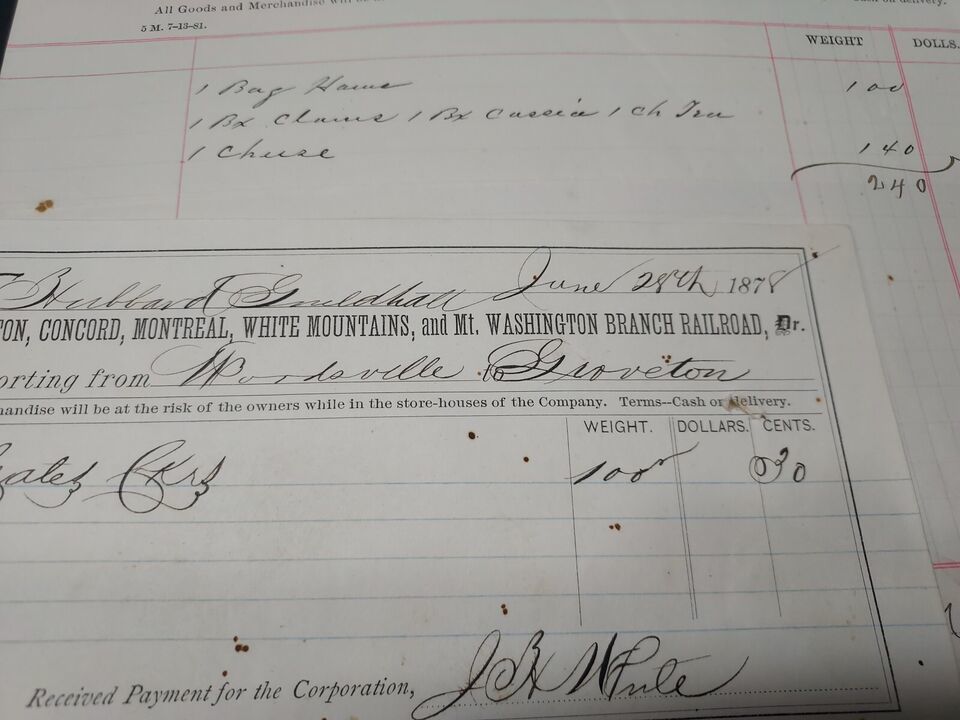 All Goods and Merchandise will be
Cash on delivery.
5 M. 7-13-81.
WEIGHT DOLLS.
1 Bag Hams 100
1 Bx Clams 1 Bx Cassia 1 Ch Tea
1 Cheese 140
240
Hubbard Guildhall June 28th 1878
TON, CONCORD, MONTREAL, WHITE MOUNTAINS, and Mt. WASHINGTON BRANCH RAILROAD, Dr.
orting from Woodsville to Groveton
handise will be at the risk of the owners while in the store-houses of the Company. Terms--Cash on delivery.
WEIGHT. DOLLARS. CENTS.
Ckrs 100 30
Received Payment for the Corporation, J H White